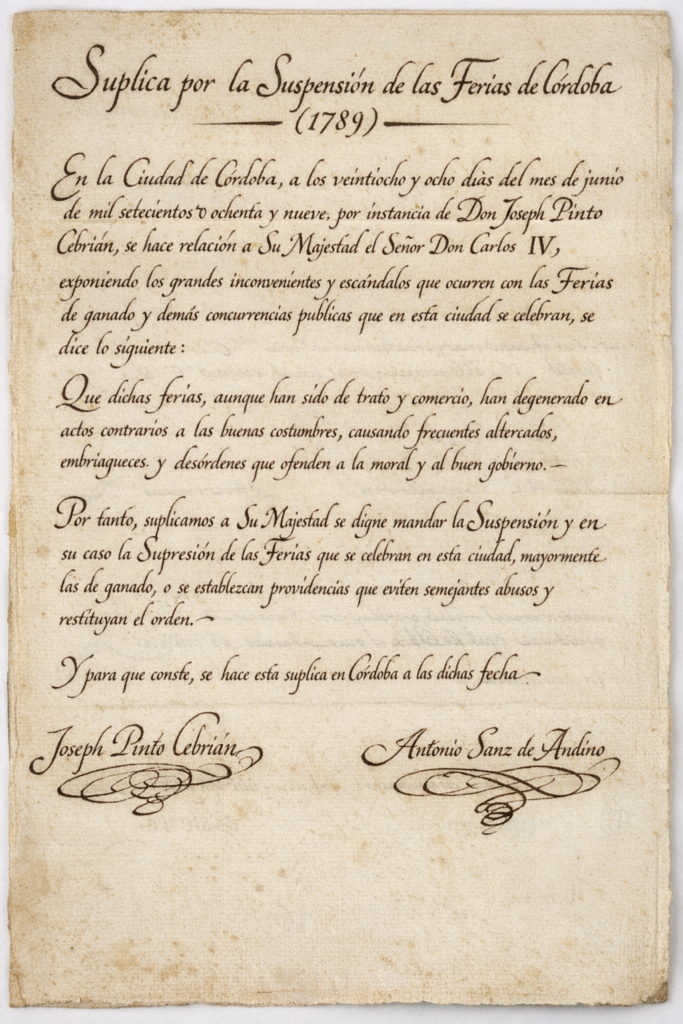 Suplica por la Suspensión de las Ferias de Córdoba
(1789)
En la Ciudad de Córdoba, a los veintiocho y ocho dias del mes de junio
de mil setecientos ochenta y nueve, por instancia de Don Joseph Pinto
Cebrián, se hace relación a Su Majestad el Señor Don Carlos IV,
exponiendo los grandes inconvenientes y escándalos que ocurren con las Ferias
de ganado y demás concurrencias publicas que en esta ciudad se celebran, se
dice lo siguiente:
Que dichas ferias, aunque han sido de trato y comercio, han degenerado en
actos contrarios a las buenas costumbres, causando frecuentes altercados,
embriagueces y desórdenes que ofenden a la moral y al buen gobierno.—
Por tanto, suplicamos a Su Majestad se digne mandar la Suspensión y en
su caso la Supresión de las Ferias que se celebran en esta ciudad, mayormente
las de ganado, o se establezcan providencias que eviten semejantes abusos y
restituyan el orden.—
Y para que conste, se hace esta suplica en Córdoba a las dichas fecha—
Joseph Pinto Cebrián
Antonio Sanz de Andino